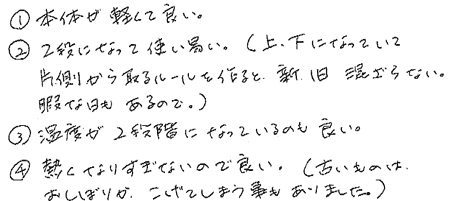 ① 本体が軽くて良い。
② 2段になって使い易い。(上、下になっていて
片側から取るルールを作ると、新、旧 混ざらない。
暇な日も あるので。)
③ 温度が2段階になっているのも 良い。
④ 熱くなりすぎないので良い。(古いものは、
おしぼりが、こげてしまう事もありました。)